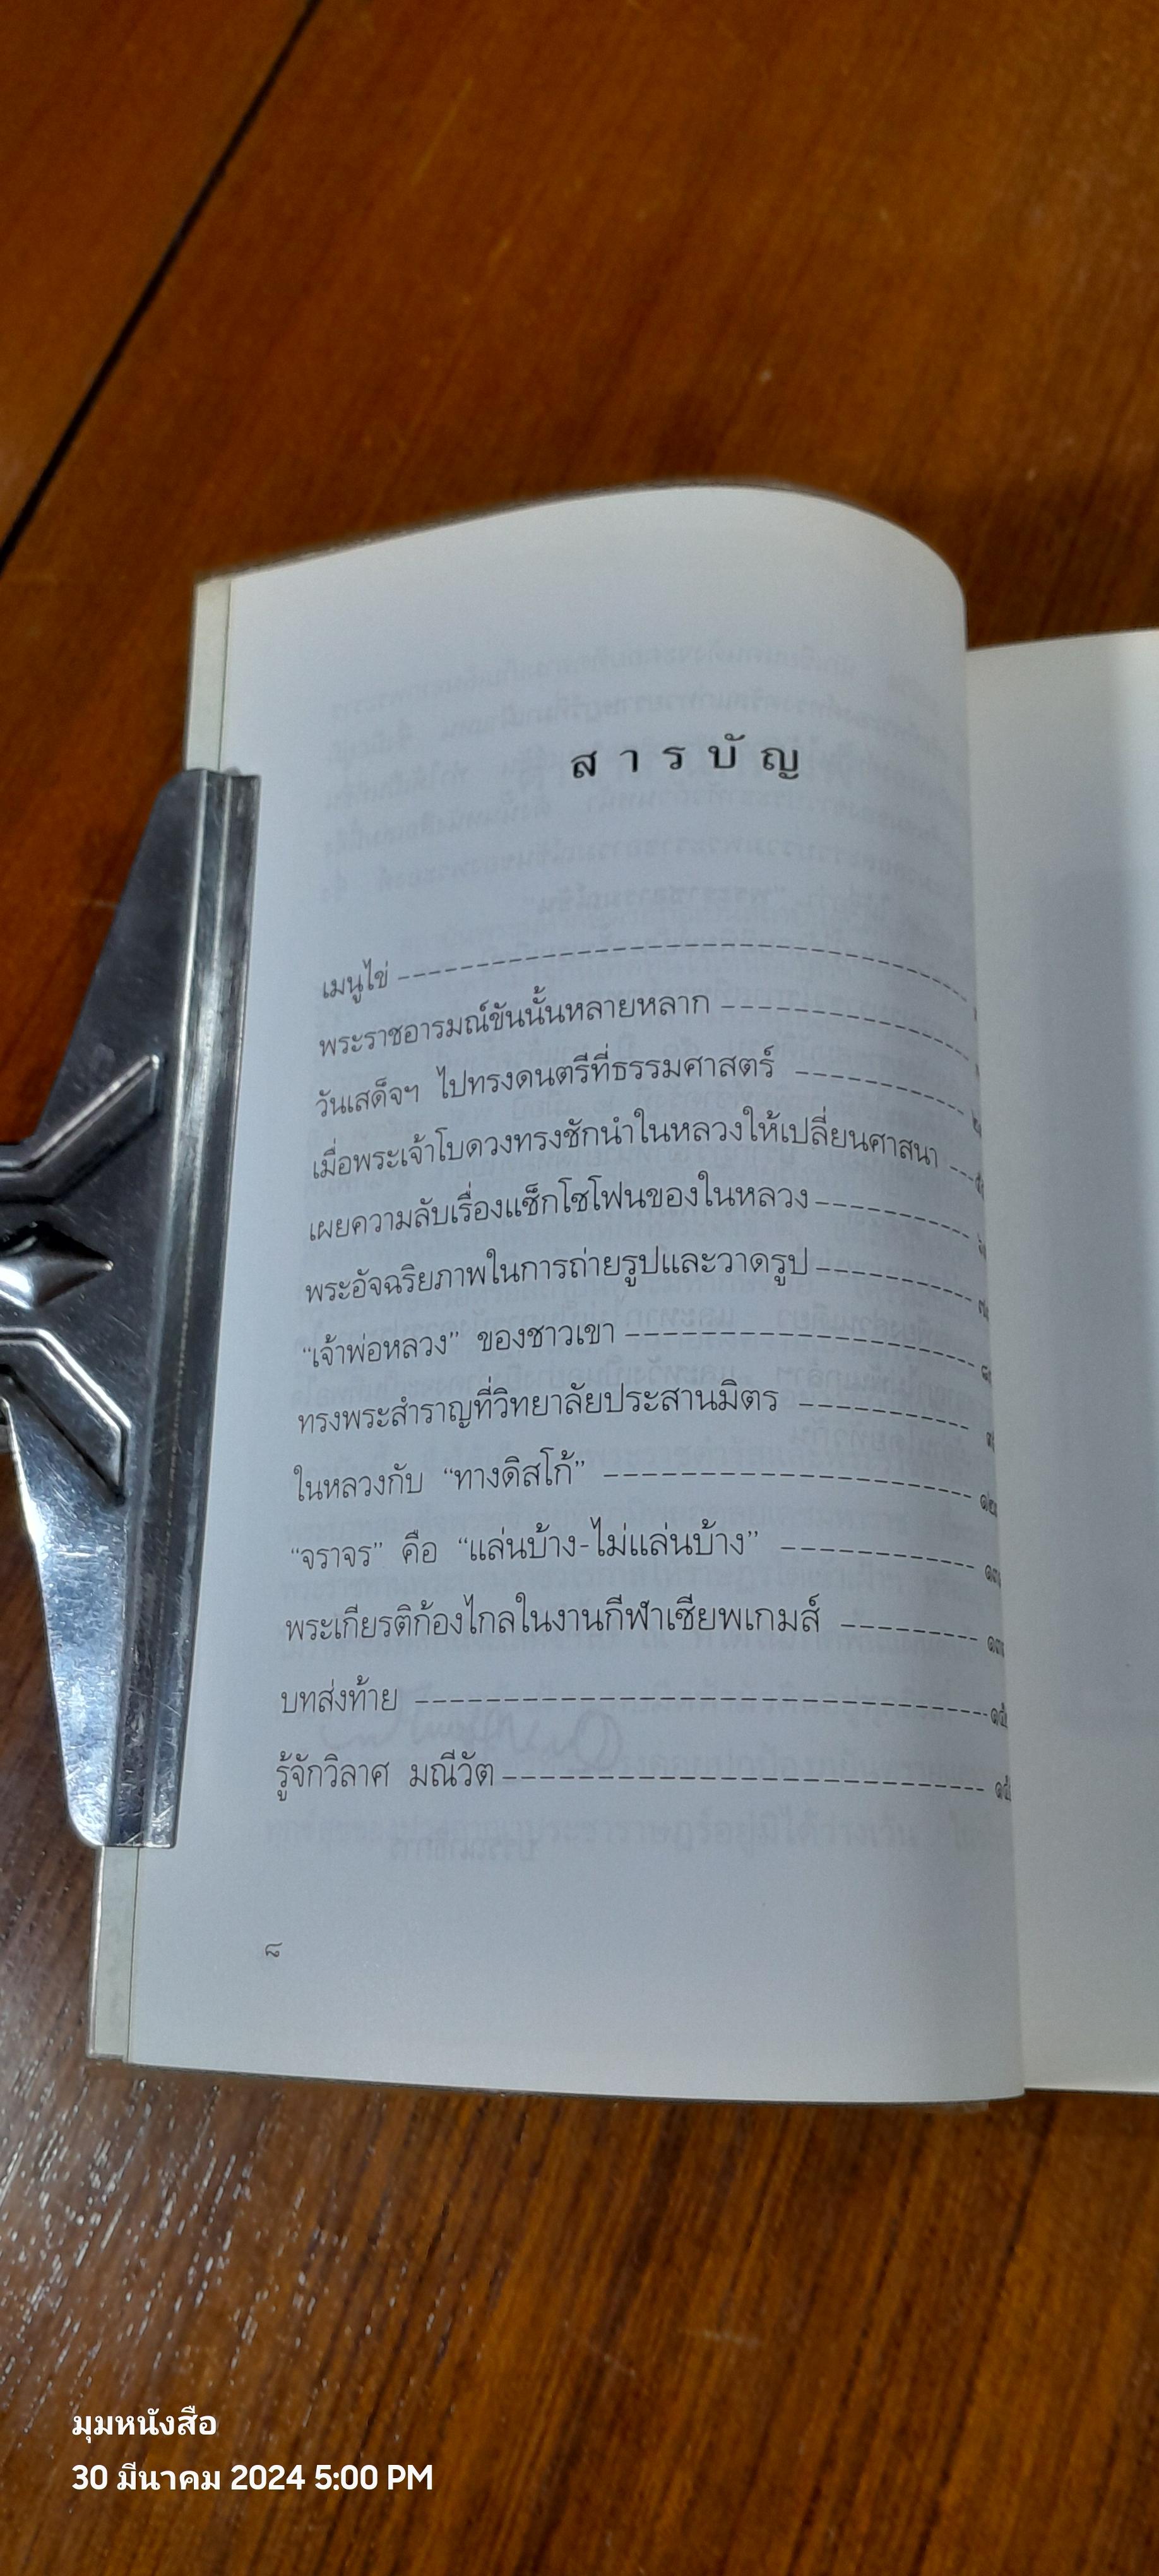 สารบัญ
เมนูไข่
พระราชอารมณ์ขันนั้นหลายหลาก
วันเสด็จฯ ไปทรงดนตรีที่ธรรมศาสตร์
เมื่อพระเจ้าโบดวงทรงชักนำในหลวงให้เปลี่ยนศาสนา
เผยความลับเรื่องแซ็กโซโฟนของในหลวง
พระอัจฉริยภาพในการถ่ายรูปและวาดรูป
“เจ้าพ่อหลวง” ของชาวเขา
ทรงพระสำราญที่วิทยาลัยประสานมิตร
ในหลวงกับ “ทางดิสโก้”
“จราจร” คือ “แล่นบ้าง-ไม่แล่นบ้าง”
พระเกียรติก้องไกลในงานกีฬาเซียพเกมส์
บทส่งท้าย
รู้จักวิลาศ มณีวัต
๘
มุมหนังสือ
30 มีนาคม 2024 5:00 PM